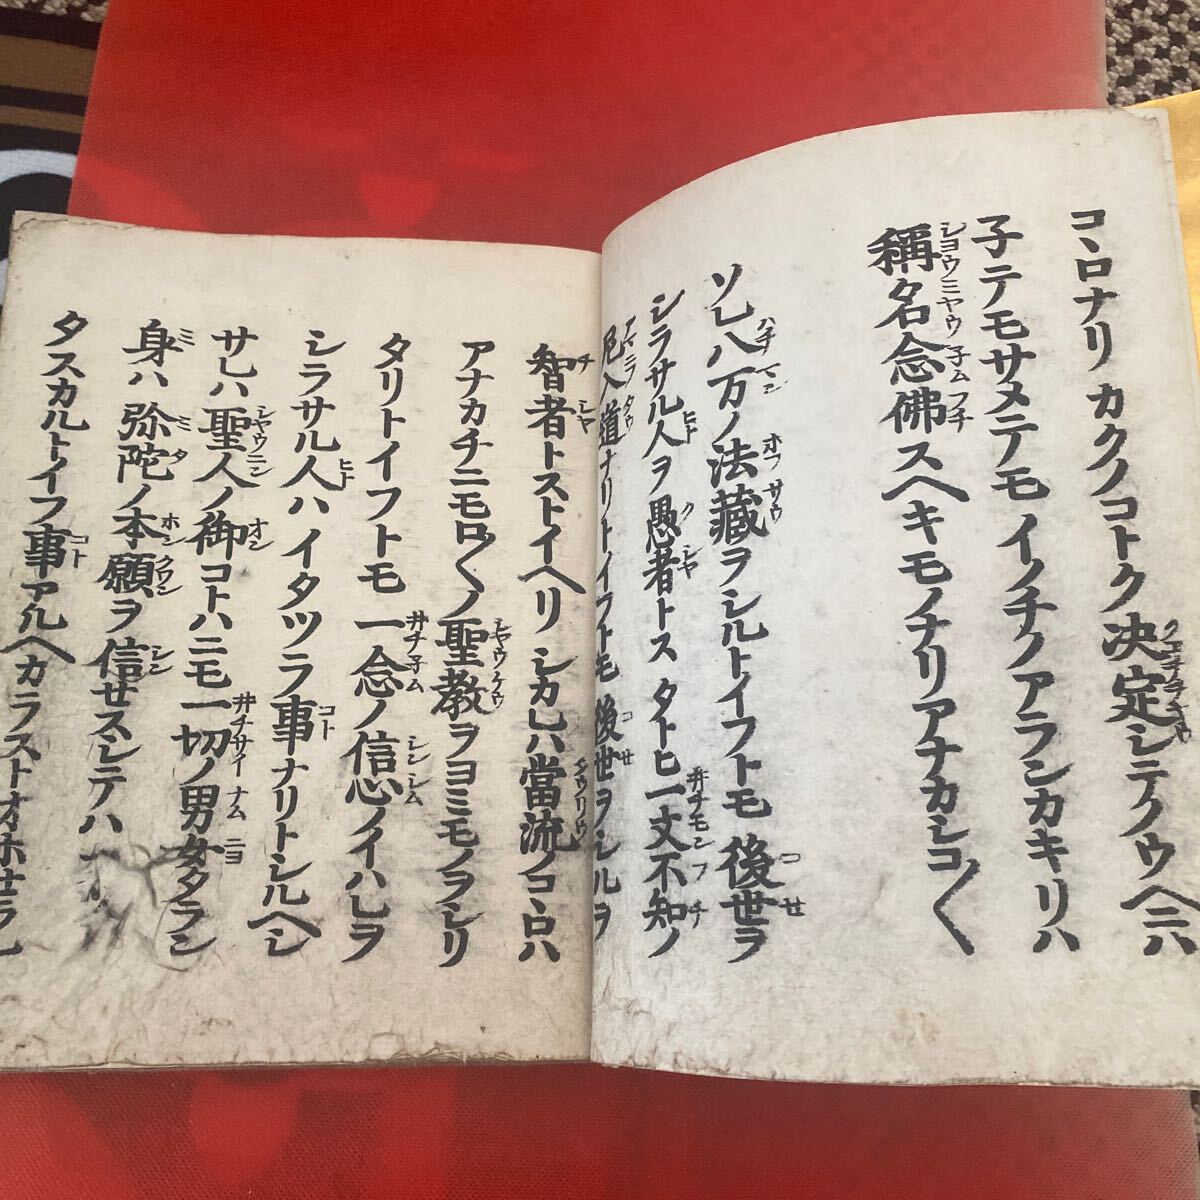 コヽロナリカクノコトク決定シテノウヘニハ
子テモサメテモイノチノアランカキリハ
稱名念佛スヘキモノナリアナカシコ〱
ソレ八万ノ法藏ヲシルトイフトモ後世ヲ
シラサル人ヲ愚者トスタトヒ一文不知ノ
尼入道ナリトイフトモ後世ヲシルヲ
智者トストイヘリシカレハ當流ノコヽロハ
アナカチニモロ〱ノ聖教ヲヨミモノヲシリ
タリトイフトモ一念ノ信心ノイハレヲ
シラサル人ハイタツラ事ナリトシルヘシ
サレハ聖人ノ御コトハニモ一切ノ男女タラン
身ハ弥陀ノ本願ヲ信セスシテハ
タスカルトイフ事アルヘカラストオホセラレ